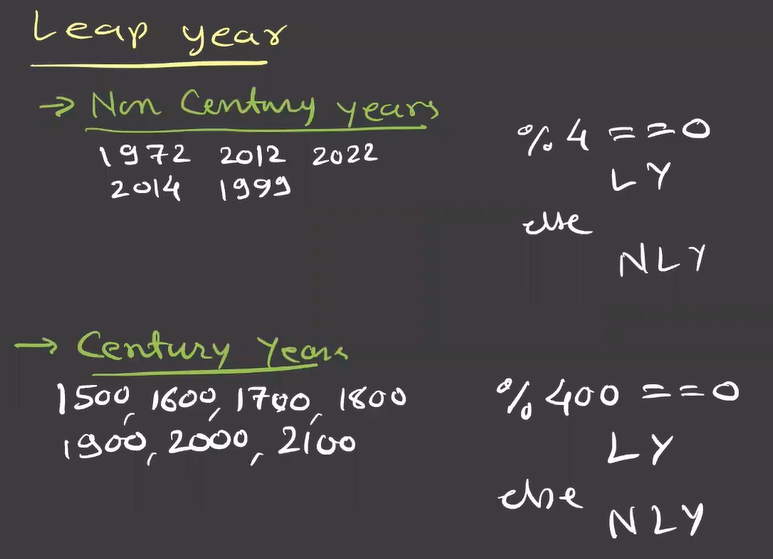 Leap year
→ Non Century years
1972 2012 2022
2014 1999
% 4 == 0
LY
else
NLY
→ Century Years
1500, 1600, 1700, 1800
1900, 2000, 2100
% 400 == 0
LY
else
NLY